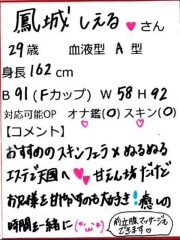 鳳城 しえる♥さん
29歳 血液型 A 型
身長 162 cm
B 91 (Fカップ) W 58 H 92
対応可能OP オナ鑑(○) スキン(○)
【コメント】
おすすめのスキンフェラ×ぬるぬる
エステで天国へ♥ 甘えん坊だけど
お兄様を甘やかすのも大好き!癒しの
時間を一緒に
前立腺マッサージも
できます♡